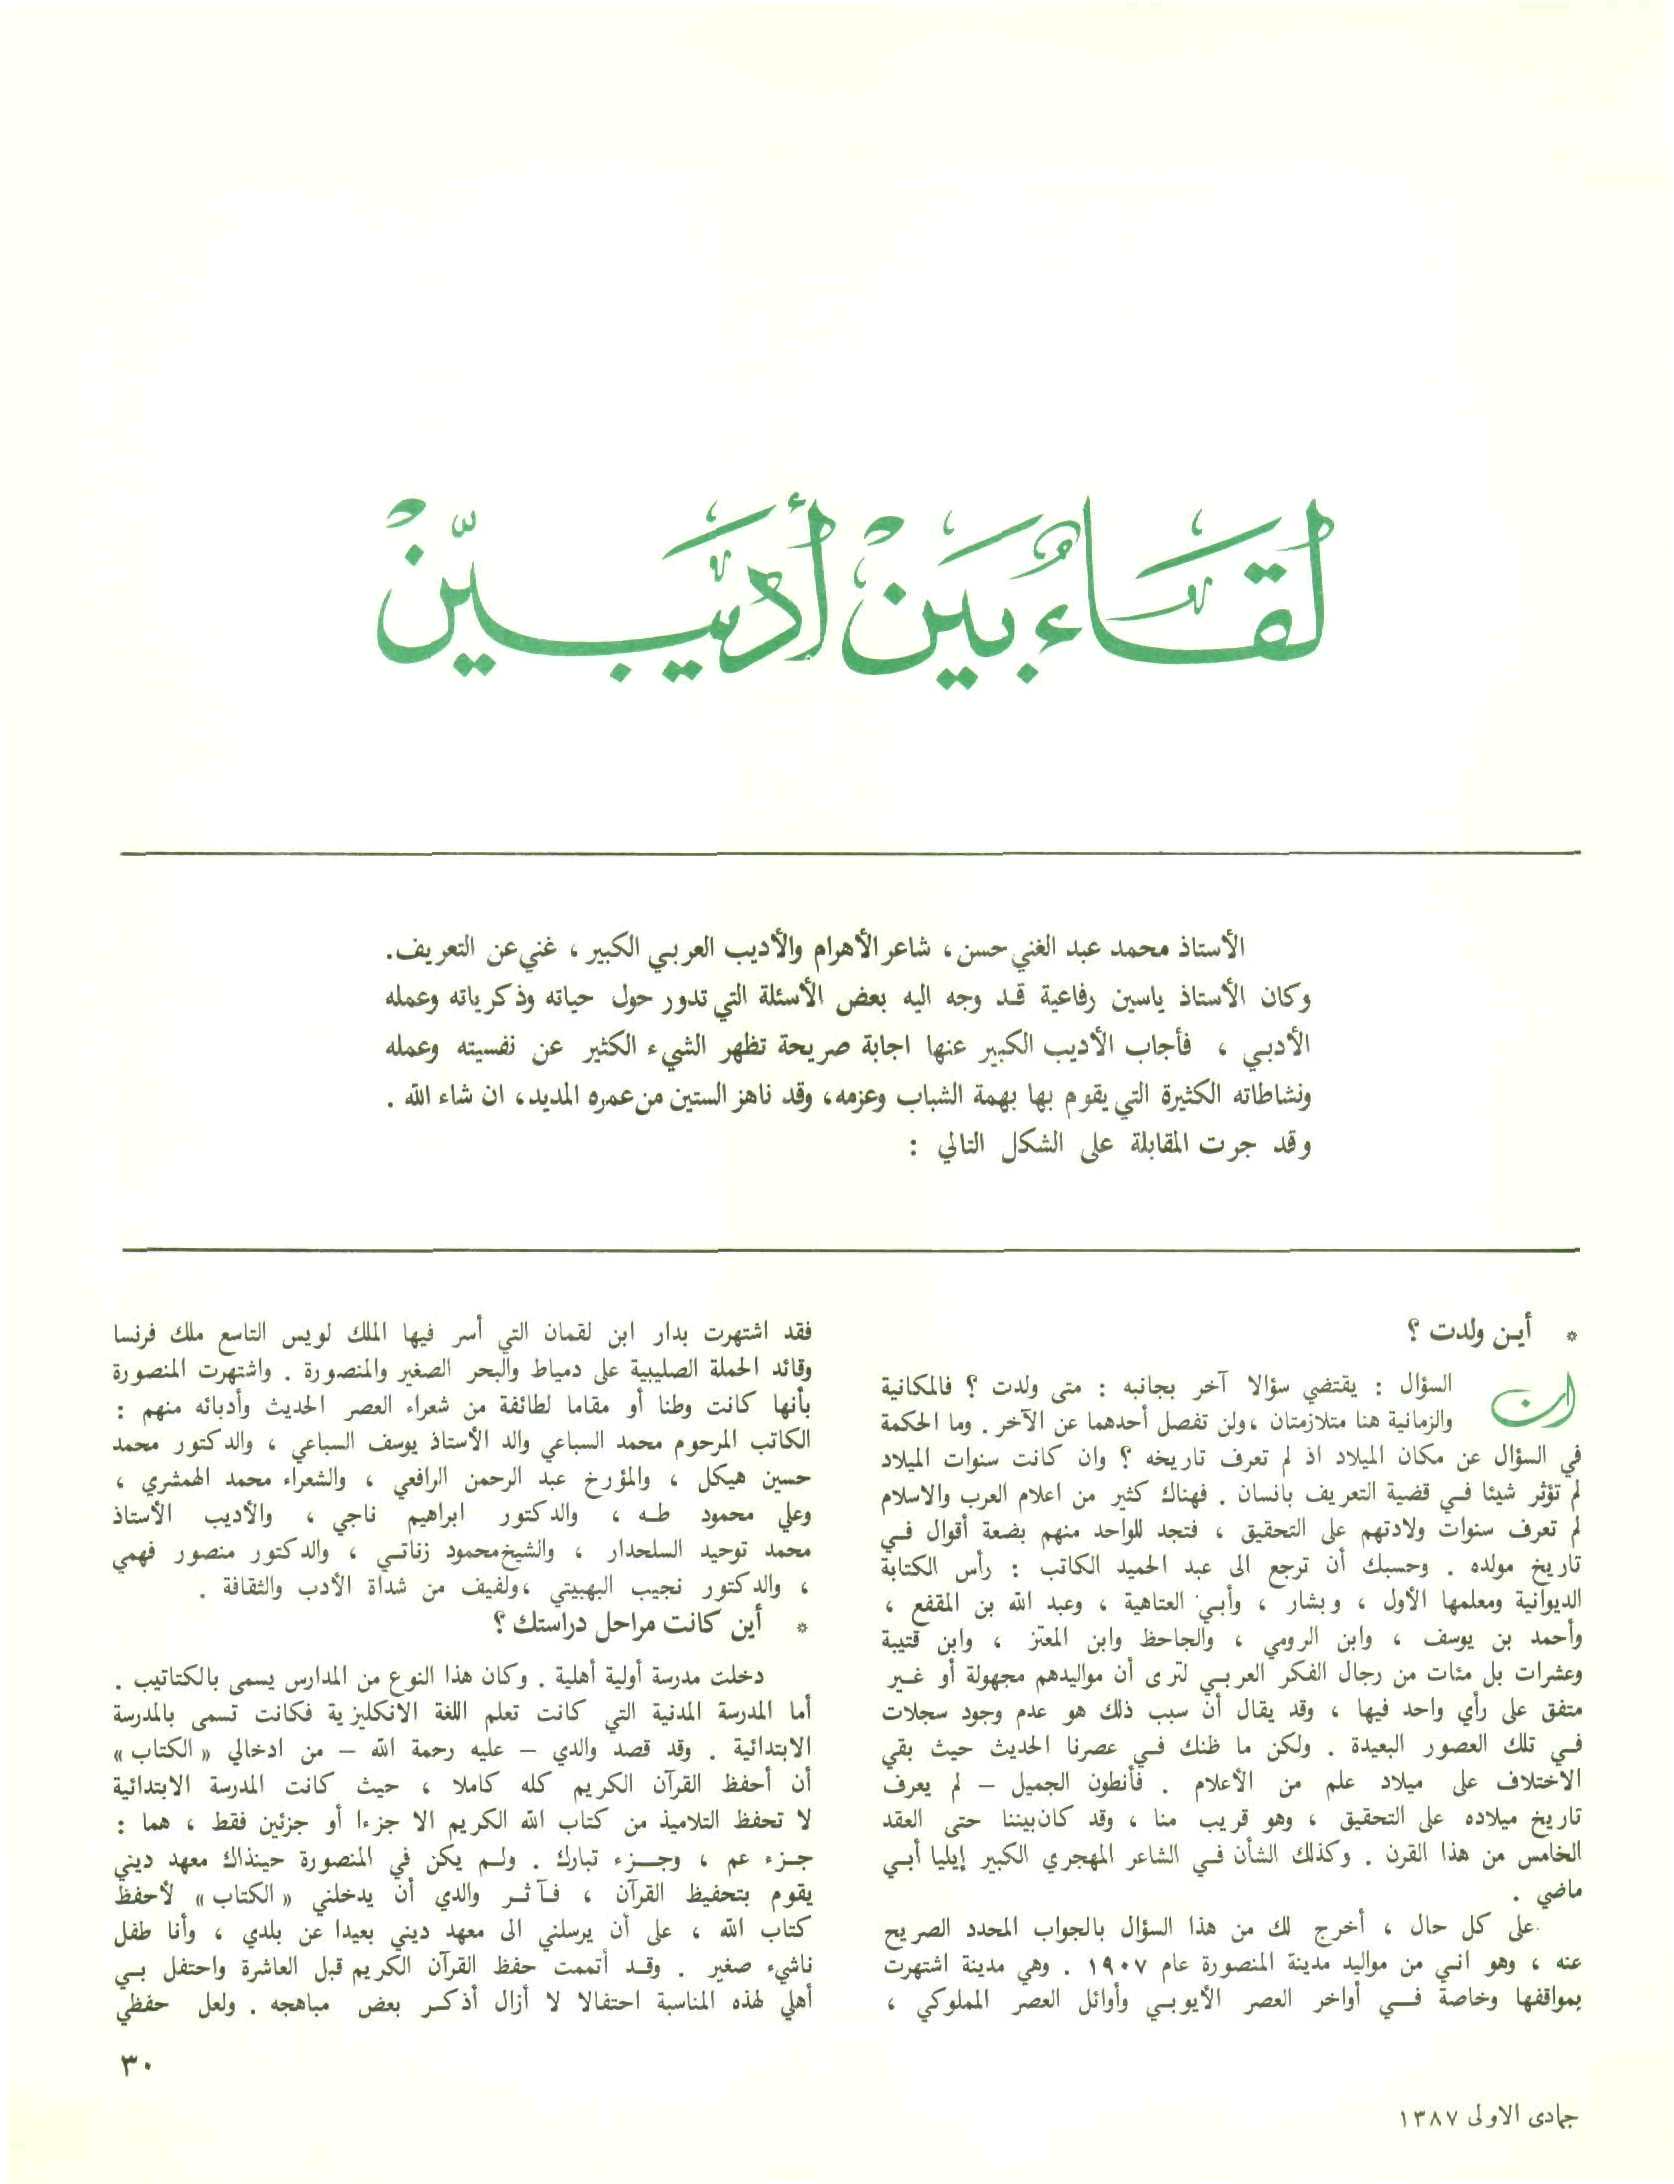 لقاء بين أديبين
الأستاذ محمد عبد الغني حسن، شاعر الأهرام والأديب العربي الكبير، غني عن التعريف.
وكان الأستاذ ياسين رفاعية قد وجه اليه بعض الأسئلة التي تدور حول حياته وذكرياته وعمله
الأدبي ، فأجاب الأديب الكبير عنها اجابة صريحة تظهر الشيء الكثير عن نفسيته وعمله
ونشاطاته الكثيرة التي يقوم بها بهمة الشباب وعزمه، وقد ناهز الستين من عمره المديد، ان شاء الله .
وقد جرت المقابلة على الشكل التالي :
* أين ولدت ؟
ان السؤال : يقتضي سؤالا آخر بجانبه : متى ولدت ؟ فالمكانية
والزمانية هنا متلازمتان ، ولن تفصل أحدهما عن الآخر . وما الحكمة
في السؤال عن مكان الميلاد اذ لم تعرف تاريخه ؟ وان كانت سنوات الميلاد
لم تؤثر شيئا في قضية التعريف بانسان . فهناك كثير من اعلام العرب والاسلام
لم تعرف سنوات ولادتهم على التحقيق ، فتجد للواحد منهم بضعة أقوال في
تاريخ مولده . وحسبك أن ترجع الى عبد الحميد الكاتب : رأس الكتابة
الديوانية ومعلمها الأول ، وبشار ، وأبي العتاهية ، وعبد الله بن المقفع ،
وأحمد بن يوسف ، وابن الرومي ، والجاحظ وابن المعتز ، وابن قتيبة
وعشرات بل مئات من رجال الفكر العربي لترى أن مواليدهم مجهولة أو غير
متفق على رأي واحد فيها ، وقد يقال أن سبب ذلك هو عدم وجود سجلات
في تلك العصور البعيدة . ولكن ما ظنك في عصرنا الحديث حيث بقي
الاختلاف على ميلاد علم من الأعلام . فأنطون الجميل - لم يعرف
تاريخ ميلاده على التحقيق ، وهو قريب منا ، وقد كان بيننا حتى العقد
الخامس من هذا القرن . وكذلك الشأن في الشاعر المهجري الكبير إيليا أبي
ماضي .
على كل حال ، أخرج لك من هذا السؤال بالجواب المحدد الصريح
عنه ، وهو اني من مواليد مدينة المنصورة عام ١٩٠٧ . وهي مدينة اشتهرت
بمواقفها وخاصة في أواخر العصر الأيوبي وأوائل العصر المملوكي ،
فقد اشتهرت بدار ابن لقمان التي أسر فيها الملك لويس التاسع ملك فرنسا
وقائد الحملة الصليبية على دمياط والبحر الصغير والمنصورة . واشتهرت المنصورة
بأنها كانت وطنا أو مقاما لطائفة من شعراء العصر الحديث وأدبائه منهم :
الكاتب المرحوم محمد السباعي والد الأستاذ يوسف السباعي ، والدكتور محمد
حسين هيكل ، والمؤرخ عبد الرحمن الرافعي ، والشعراء محمد الهمشري ،
وعلي محمود طه ، والدكتور ابراهيم ناجي ، والأديب الأستاذ
محمد توحيد السلحدار ، والشيخ محمود زناتي ، والدكتور منصور فهمي
، والدكتور نجيب البهبيتي ، ولفيف من شداة الأدب والثقافة .
* أين كانت مراحل دراستك ؟
دخلت مدرسة أولية أهلية . وكان هذا النوع من المدارس يسمى بالكتاتيب .
أما المدرسة المدنية التي كانت تعلم اللغة الانكليزية فكانت تسمى بالمدرسة
الابتدائية . وقد قصد والدي - عليه رحمة الله - من ادخالي « الكتاب »
أن أحفظ القرآن الكريم كله كاملا ، حيث كانت المدرسة الابتدائية
لا تحفظ التلاميذ من كتاب الله الكريم الا جزءا أو جزئين فقط ، هما :
جزء عم ، وجزء تبارك . ولم يكن في المنصورة حينذاك معهد ديني
يقوم بتحفيظ القرآن ، فآثر والدي أن يدخلني « الكتاب » لأحفظ
كتاب الله ، على أن يرسلني الى معهد ديني بعيدا عن بلدي ، وأنا طفل
ناشيء صغير . وقد أتممت حفظ القرآن الكريم قبل العاشرة واحتفل بي
أهلي لهذه المناسبة احتفالا لا أزال أذكر بعض مباهجه . ولعل حفظي
٣٠
جمادى الاولى ١٣٨٧